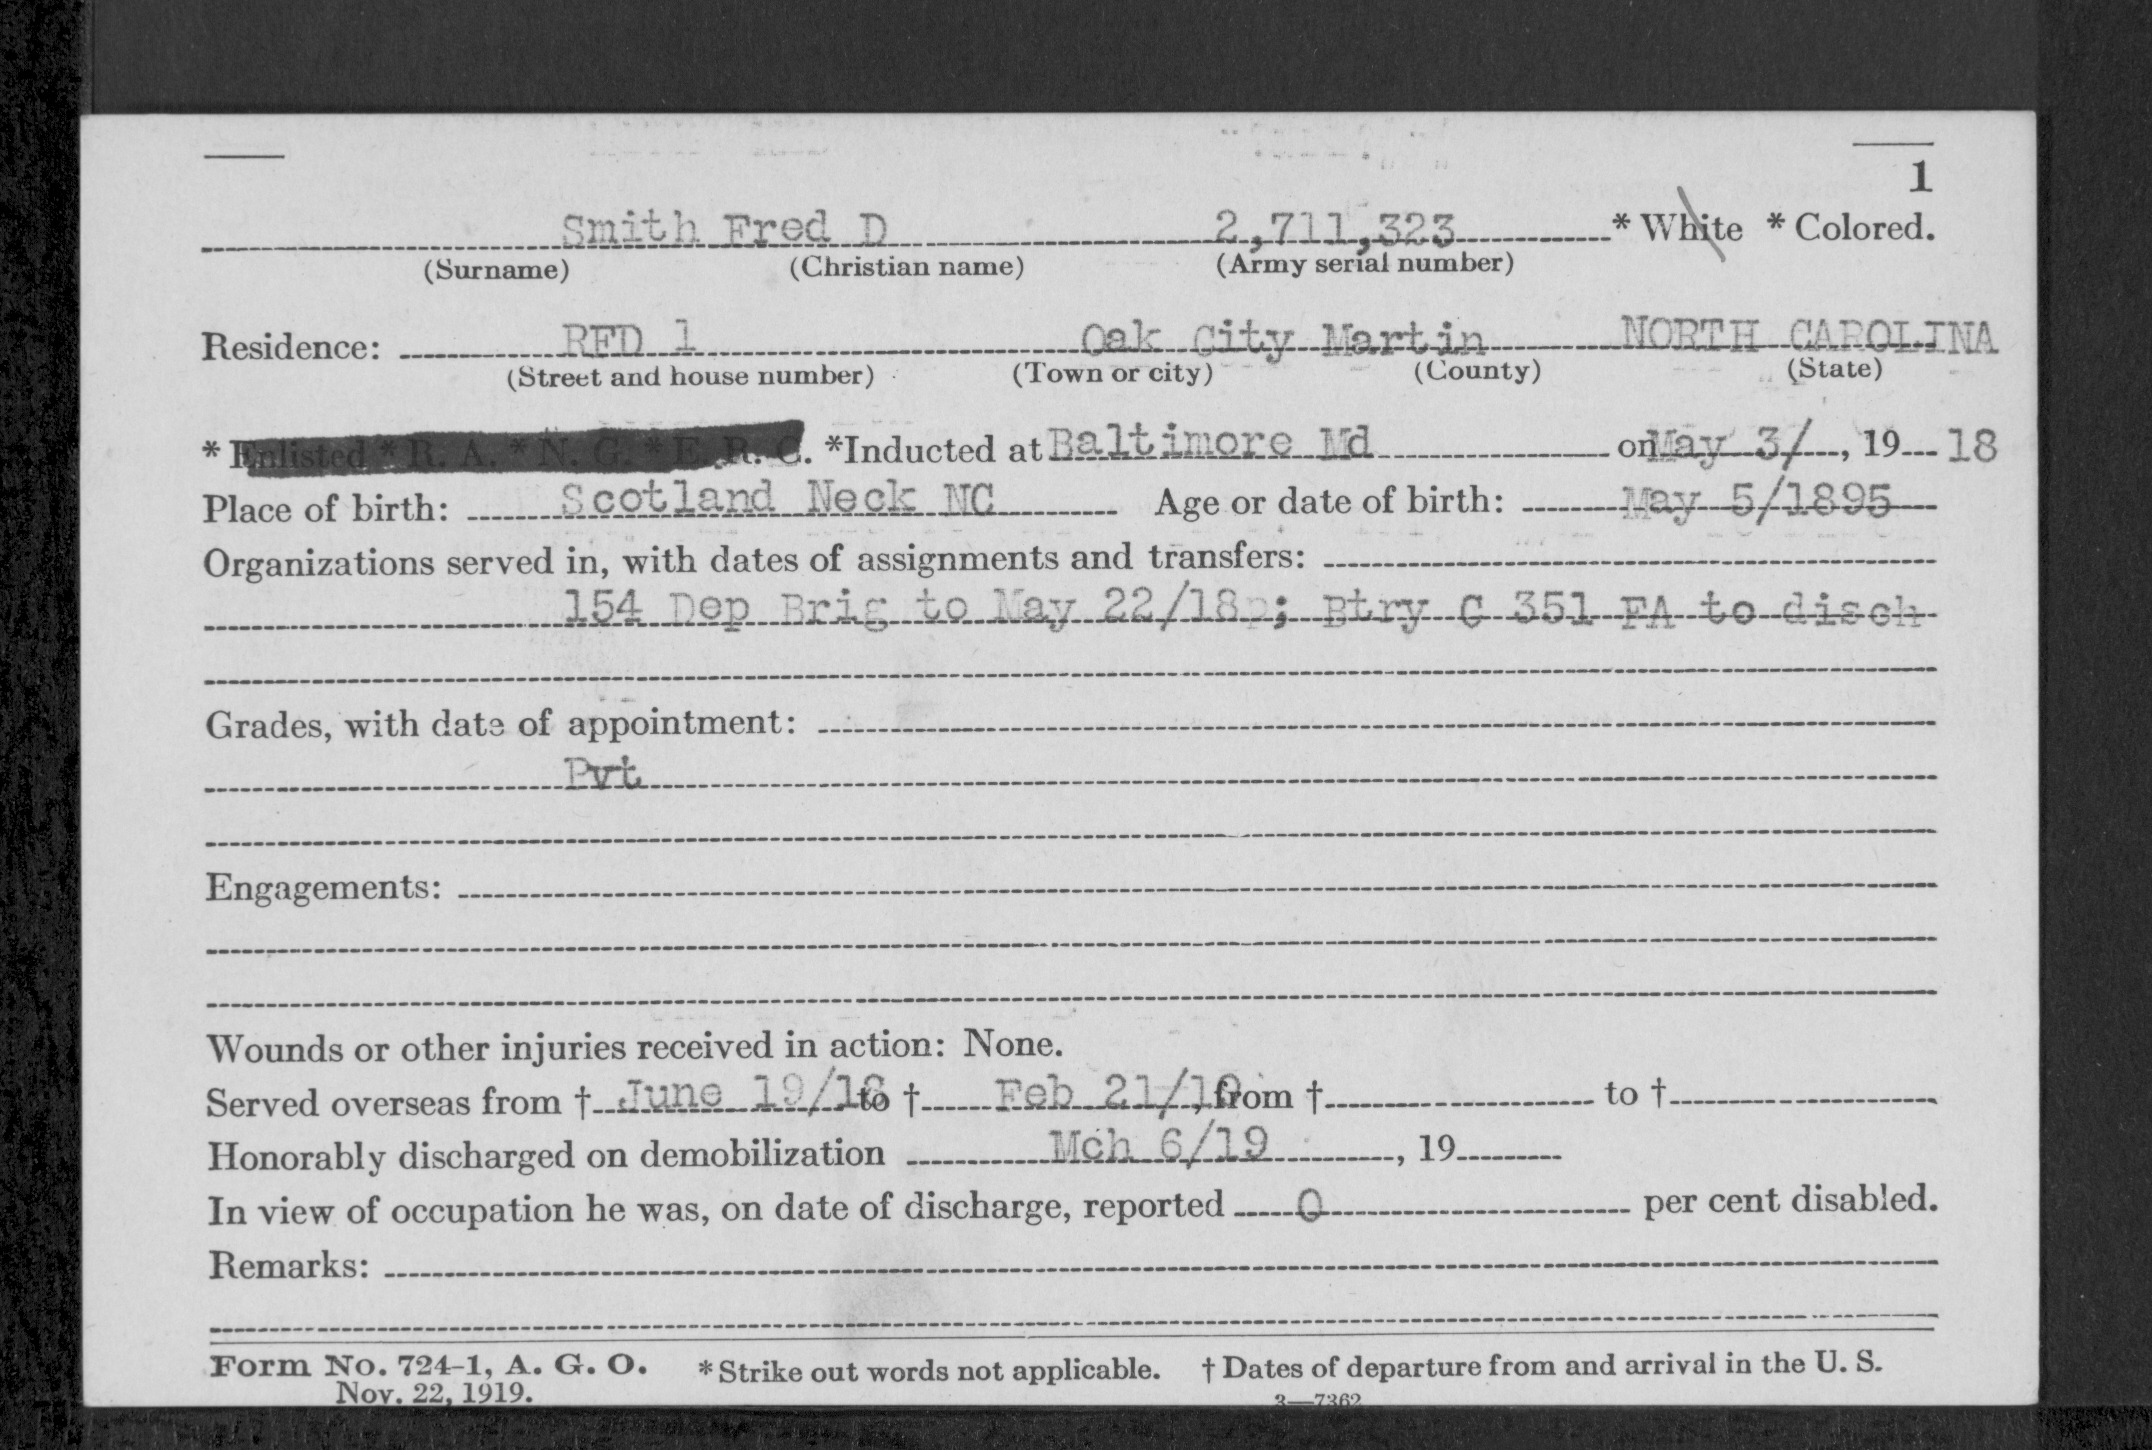 1
Smith Fred D 2,711,323 * White * Colored.
(Surname) (Christian name) (Army serial number)
Residence: RFD 1 Oak City Martin NORTH CAROLINA
(Street and house number) (Town or city) (County) (State)
* Enlisted * R. A. * N. G. * E. R. C. *Inducted at Baltimore Md on May 3/, 19 18
Place of birth: Scotland Neck NC Age or date of birth: May 5/1895
Organizations served in, with dates of assignments and transfers:
154 Dep Brig to May 22/18; Btry C 351 FA to disch
Grades, with date of appointment:
Pvt
Engagements:
Wounds or other injuries received in action: None.
Served overseas from † June 19/18 to † Feb 21/19, from † to †
Honorably discharged on demobilization Mch 6/19, 19
In view of occupation he was, on date of discharge, reported 0 per cent disabled.
Remarks:
Form No. 724-1, A. G. O. * Strike out words not applicable. † Dates of departure from and arrival in the U. S.
Nov. 22, 1919. 3—7362